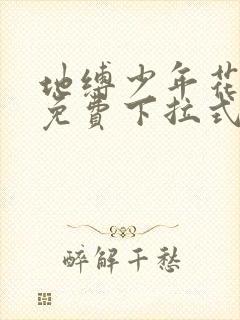 地缚少年花
免費下拉式
醉解千愁